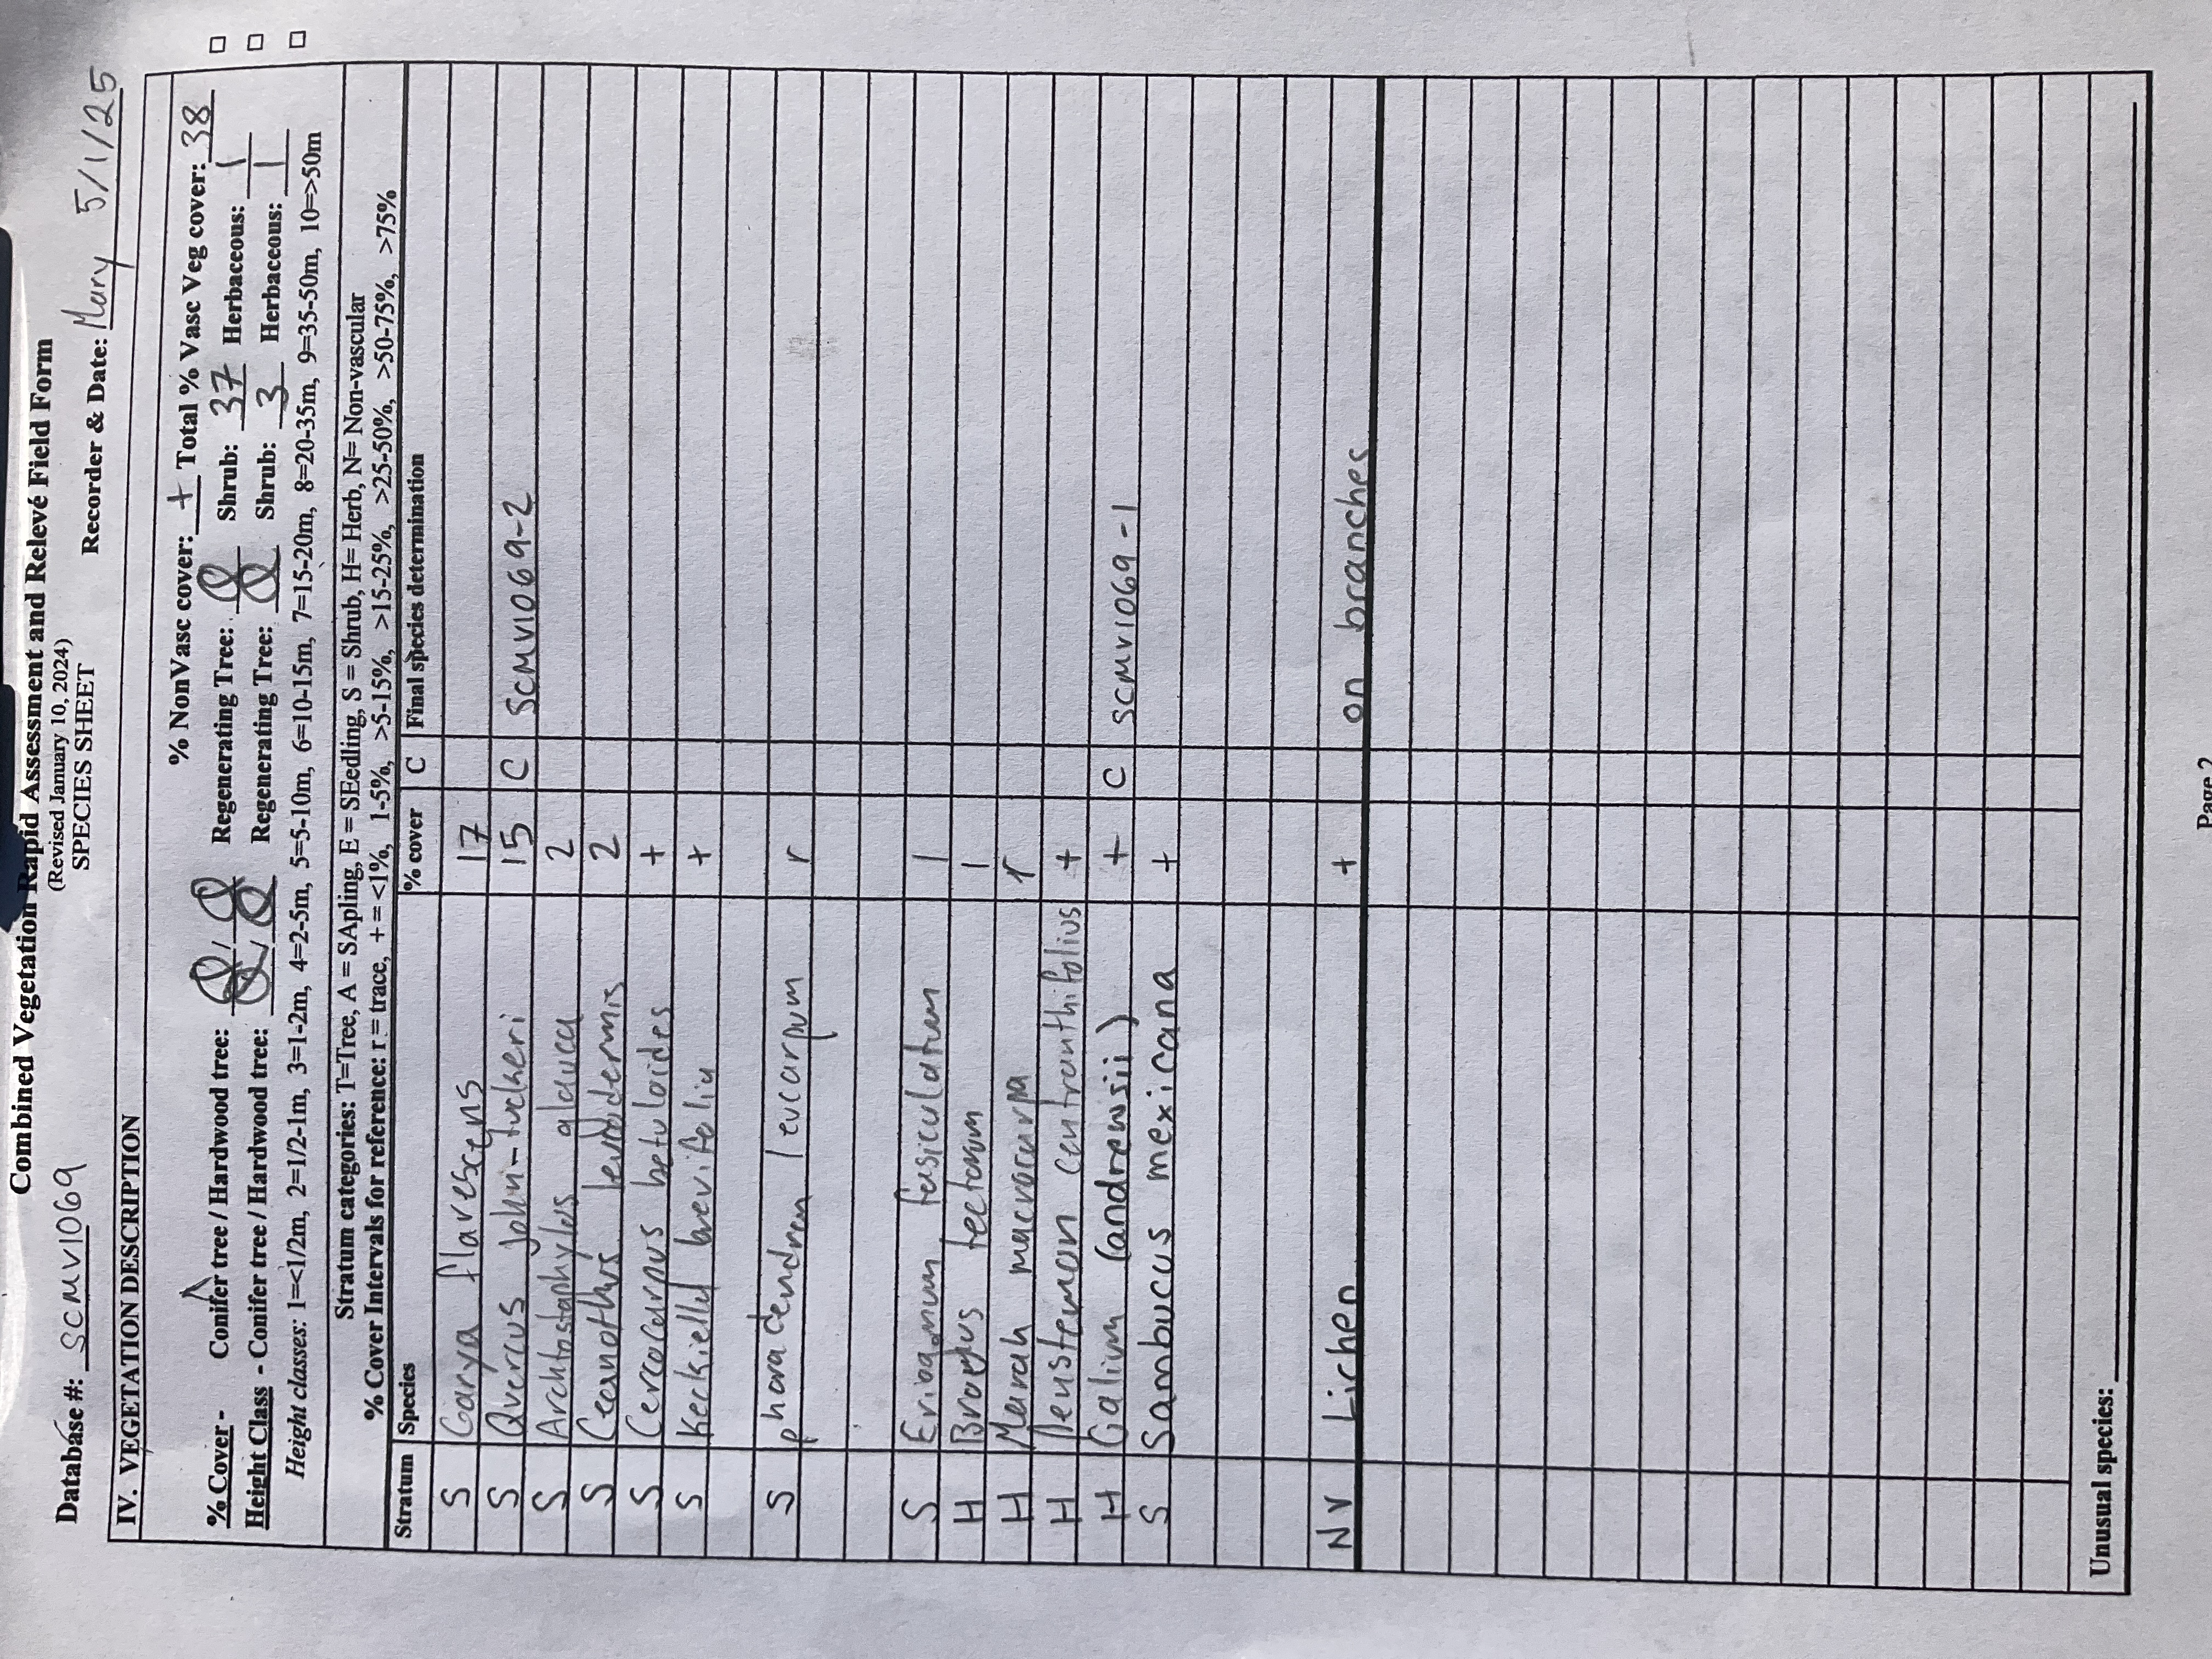 Combined Vegetation Rapid Assessment and Relevé Field Form
(Revised January 10, 2024)
SPECIES SHEET
Database #: SCMV1069 Recorder & Date: Mary 5/1/25
IV. VEGETATION DESCRIPTION
% NonVasc cover: + Total % Vasc Veg cover: 38
% Cover - Conifer tree / Hardwood tree: 0 / 0 Regenerating Tree: 0 Shrub: 37 Herbaceous: 1
Height Class - Conifer tree / Hardwood tree: 0 / 0 Regenerating Tree: 0 Shrub: 3 Herbaceous: 1
Height classes: 1=<1/2m, 2=1/2-1m, 3=1-2m, 4=2-5m, 5=5-10m, 6=10-15m, 7=15-20m, 8=20-35m, 9=35-50m, 10=>50m
Stratum categories: T=Tree, A = SApling, E = SEedling, S = Shrub, H= Herb, N= Non-vascular
% Cover Intervals for reference: r = trace, + = <1%, 1-5%, >5-15%, >15-25%, >25-50%, >50-75%, >75%
Stratum Species % cover C Final species determination
S Garya flavescens 17
S Quercus john-tuckeri 15 C SCMV1069-2
S Archtostaphylos glauca 2
S Ceanothus leucodermis 2
S Cercocarpus betuloides +
S Keckiella brevifolia +
S phoradendron leucarpum r
S Eriogonum fasiculatum 1
H Bromus tectorum 1
H Marah macrocarpa r
H Penstemon centranthifolius +
H Galium (andrewsii) + C SCMV1069-1
S Sambucus mexicana +
NV Lichen + on branches
Unusual species:
Page 2